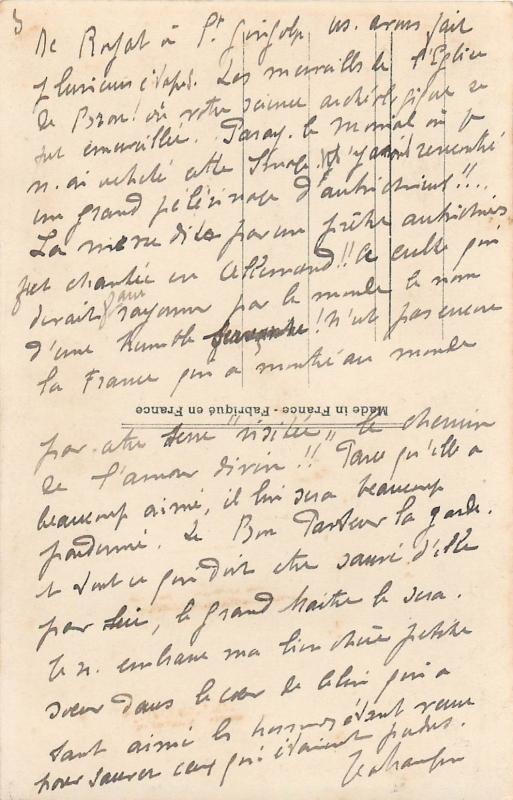 De Royat à St Gingolph ns. avons fait
plusieurs étapes. Les merveilles de l'Eglise
de Brou! où votre science archéologique se
fut émerveillée. Paray. le monial où je
n. ai acheté cette Image. Ns y avons rencontré
un grand pélérinage d'autrichiens!!...
La messe dite par un prêtre autrichien
fut chantée en Allemand!! Ce culte qui
devait faire rayonner par le monde le nom
d'une humble servante! n'est pas encore
la France qui a montré au monde
Made in France - Fabriqué en France
par cette terre "visitée" le chemin
de l'amour divin!! Parce qu'elle a
beaucoup aimé, il lui sera beaucoup
pardonné. Le Bon Pasteur la garde.
et tout ce qui doit être sauvé d'elle
par Lui, le grand Maître le sera.
Je n. embrasse ma bien chère petite
soeur dans le coeur de Celui qui a
tant aimé les hommes étant venu
pour sauver ceux qui étaient perdus.